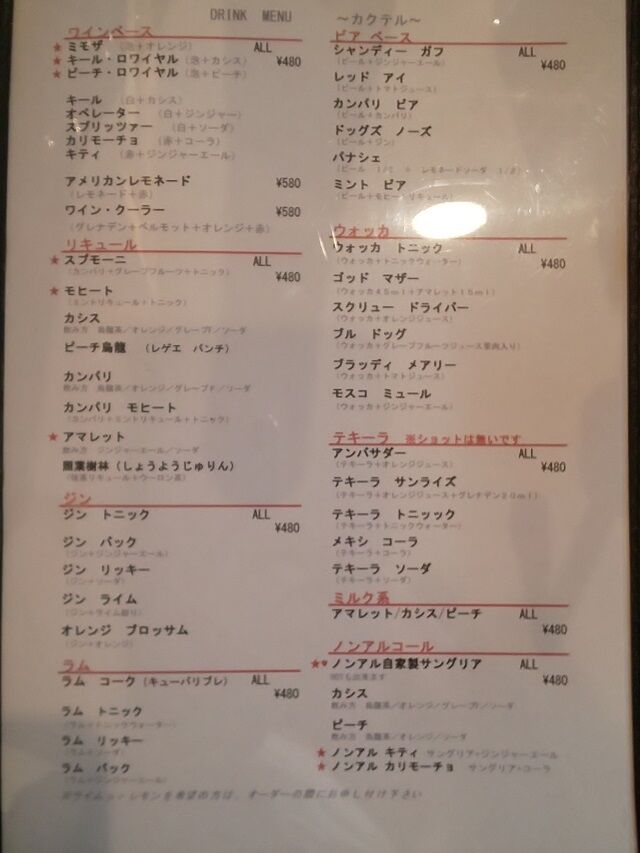 DRINK MENU
～カクテル～
ワインベース
★ ミモザ （泡＋オレンジ） ALL
★ キール・ロワイヤル（泡＋カシス） ¥480
★ ピーチ・ロワイヤル（泡＋ピーチ）
キール （白＋カシス）
オペレーター （白＋ジンジャー）
スプリッツァー （白＋ソーダ）
カリモーチョ （赤＋コーラ）
キティ （赤＋ジンジャーエール）
アメリカンレモネード ¥580
（レモネード＋赤）
ワイン・クーラー ¥580
（グレナデン＋ベルモット＋オレンジ＋赤）
リキュール
★ スプモーニ ALL
（カンパリ＋グレープフルーツ＋トニック） ¥480
★ モヒート
（ミントリキュール＋トニック）
カシス
飲み方 烏龍茶／オレンジ／グレープF／ソーダ
ピーチ烏龍 （レゲエ パンチ）
カンパリ
飲み方 烏龍茶／オレンジ／グレープF／ソーダ
カンパリ モヒート
（カンパリ＋ミントリキュール＋トニック）
★ アマレット
飲み方 ジンジャーエール／ソーダ
照葉樹林（しょうようじゅりん）
（抹茶リキュール＋ウーロン茶）
ジン
ジン トニック ALL
¥480
ジン バック
（ジン＋ジンジャーエール）
ジン リッキー
（ジン＋ソーダ）
ジン ライム
（ジン＋ライム絞り）
オレンジ ブロッサム
（ジン＋オレンジ）
ラム
ラム コーク（キューバリブレ） ALL
¥480
ラム トニック
（ラム＋トニックウォーター）
ラム リッキー
（ラム＋ソーダ）
ラム バック
（ラム＋ジンジャーエール）
レモンを希望の方は、オーダーの際にお申し付け下さい
ビア ベース
シャンディー ガフ ALL
（ビール＋ジンジャーエール） ¥480
レッド アイ
（ビール＋トマトジュース）
カンパリ ビア
（ビール＋カンパリ）
ドッグズ ノーズ
（ビール＋ジン）
パナシェ
（ビール 1／2 ＋ レモネードソーダ 1／2）
ミント ビア
（ビール＋モヒートリキュール）
ウォッカ
ウォッカ トニック ALL
（ウォッカ＋トニックウォーター） ¥480
ゴッド マザー
（ウォッカ45ml＋アマレット15ml）
スクリュー ドライバー
（ウォッカ＋オレンジジュース）
ブル ドッグ
（ウォッカ＋グレープフルーツジュース果肉入り）
ブラッディ メアリー
（ウォッカ＋トマトジュース）
モスコ ミュール
（ウォッカ＋ジンジャーエール）
テキーラ ※ショットは無いです
アンバサダー ALL
（テキーラ＋オレンジジュース） ¥480
テキーラ サンライズ
（テキーラ＋オレンジジュース＋グレナデン20ml）
テキーラ トニック
（テキーラ＋トニックウォーター）
メキシ コーラ
（テキーラ＋コーラ）
テキーラ ソーダ
（テキーラ＋ソーダ）
ミルク系
アマレット/カシス/ピーチ ALL
¥480
ノンアルコール
★♥ ノンアル自家製サングリア ALL
HOTも出来ます ¥480
カシス
飲み方 烏龍茶／オレンジ／グレープF／ソーダ
ピーチ
飲み方 烏龍茶／オレンジ／ソーダ
★ ノンアル キティ サングリア+ジンジャーエール
★ ノンアル カリモーチョ サングリア+コーラ